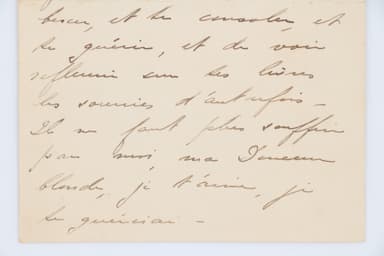 bercer, et te consoler, et
te guérir, et de voir
refleurir sur tes lèvres
les sourires d'autrefois —
Il ne faut plus souffrir
pour moi, ma Douceur
blonde, je t'aime, je
te guérirai —